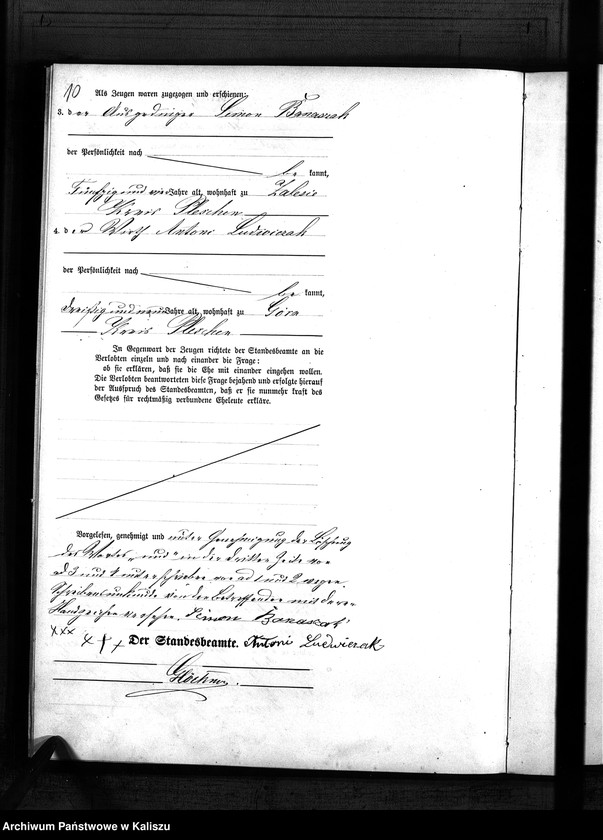 10
Als Zeugen waren zugezogen und erschienen:
3. der Ausgedinger Simon Banaszak
der Persönlichkeit nach
be kannt,
Fünfzig und vier Jahre alt, wohnhaft zu Zalesie
Kreis Pleschen
4. der Wirth Antoni Ludwiczak
der Persönlichkeit nach
be kannt,
dreißig und neun Jahre alt, wohnhaft zu Góra
Kreis Pleschen
In Gegenwart der Zeugen richtete der Standesbeamte an die
Verlobten einzeln und nach einander die Frage:
ob sie erklären, daß sie die Ehe mit einander eingehen wollen.
Die Verlobten beantworteten diese Frage bejahend und erfolgte hierauf
der Ausspruch des Standesbeamten, daß er sie nunmehr kraft des
Gesetzes für rechtmäßig verbundene Eheleute erkläre.
Vorgelesen, genehmigt und unter Genehmigung der Löschung
des Wortes „und" in der dritten Zeile von
ad 3 und 4 unterschrieben von ad 1 und 2 wegen
Schreibensunkunde von den Betreffenden mit deren
Handzeichen versehen. Simon Banaszak
xxx
x x x Der Standesbeamte. Antoni Ludwiczak
Archiwum Państwowe w Kaliszu